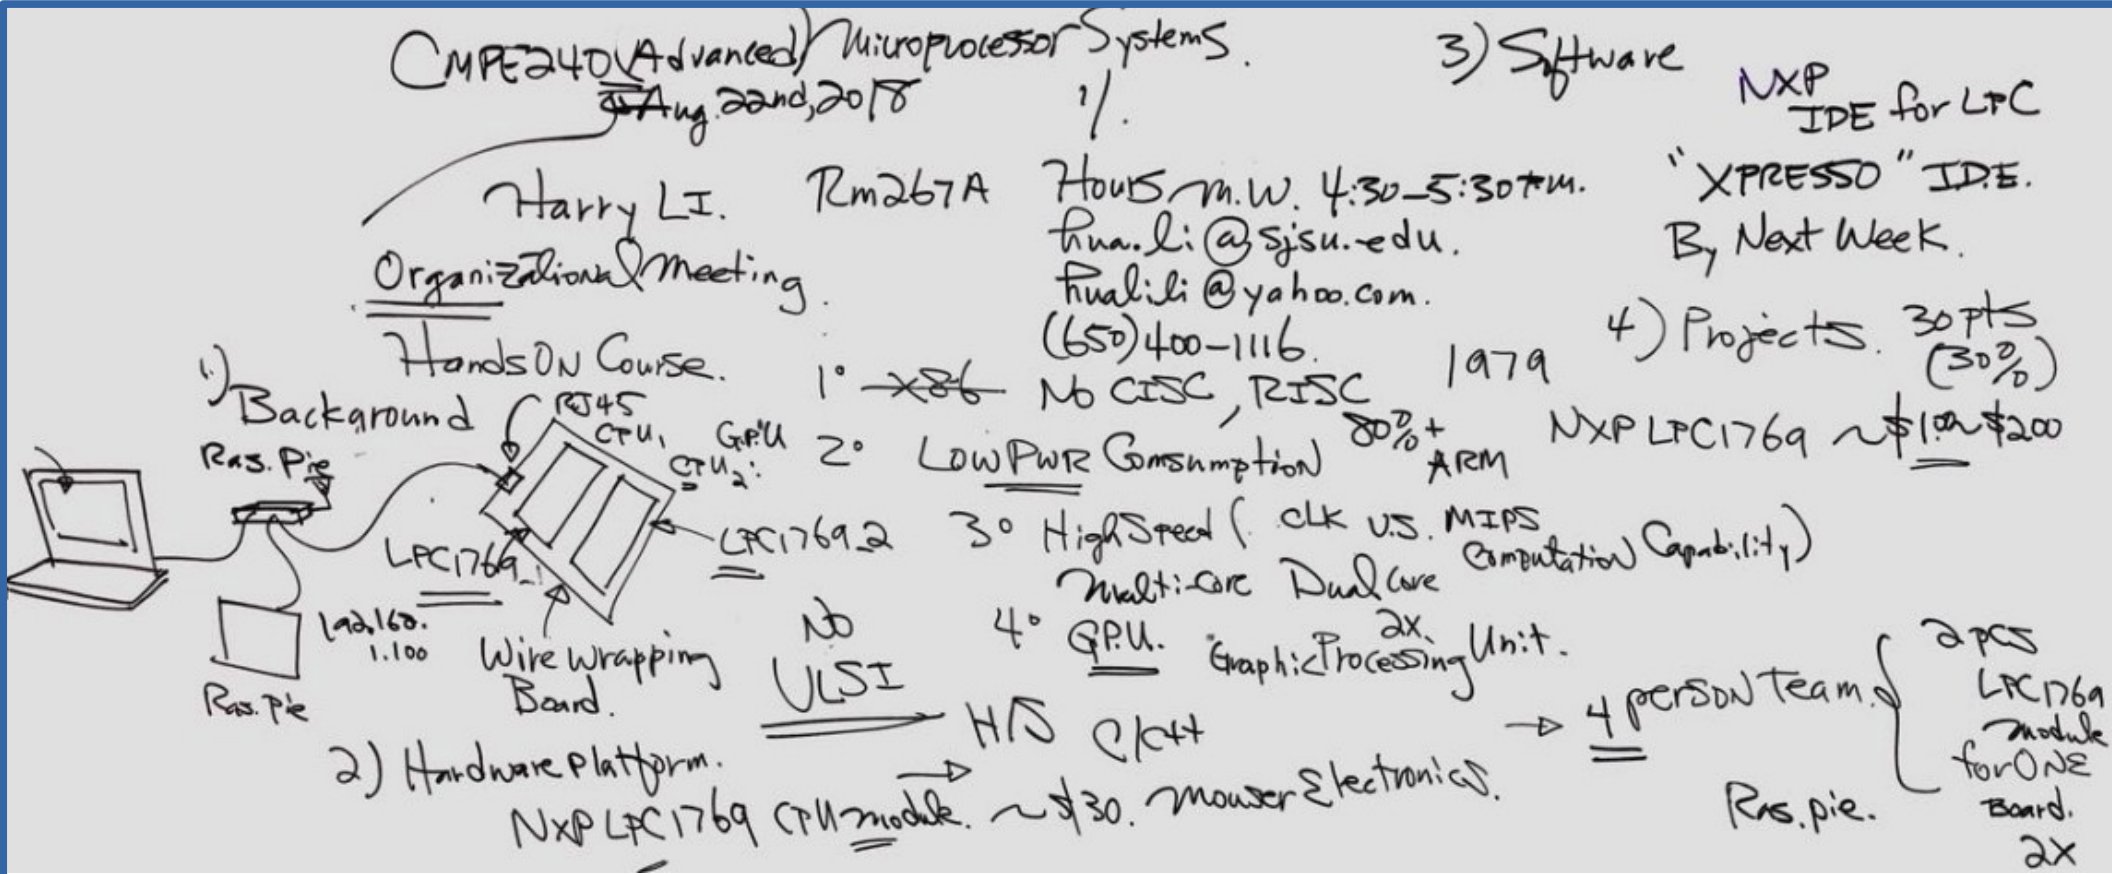 CMPE240 (Advanced) Microprocessor Systems.
Aug. 22nd, 2018
1/.
Harry LI. Rm267A Hours M.W. 4:30-5:30 PM.
hua.li@sjsu.edu.
hualili@yahoo.com.
(650)400-1116.
Organizational Meeting.
Hands ON Course.
1.) Background
Ras. Pie
RJ45
CPU1
GPU
CPU2:
LPC1769_1
LPC1769_2
192.168.
1.100
Ras. Pie
Wire wrapping
Board.
1° x86 No CISC, RISC 1979
2° LOW PWR Consumption 80%+
ARM
3° High Speed ( CLK v.s. MIPS
Computation Capability)
Multi-core Dual Core
2x
4° GPU. Graphic Processing Unit.
No
VLSI
H/S C/C++
2) Hardware platform.
NXP LPC1769 CPU module. ~$30. Mouser Electronics.
3) Software
NXP
IDE for LPC
"XPRESSO" IDE.
By Next Week.
4) Projects. 30pts
(30%)
NXP LPC1769 ~ $100~$200
4 person Team.
2 pcs
LPC1769
module
for ONE
Board.
2X
Ras. pie.